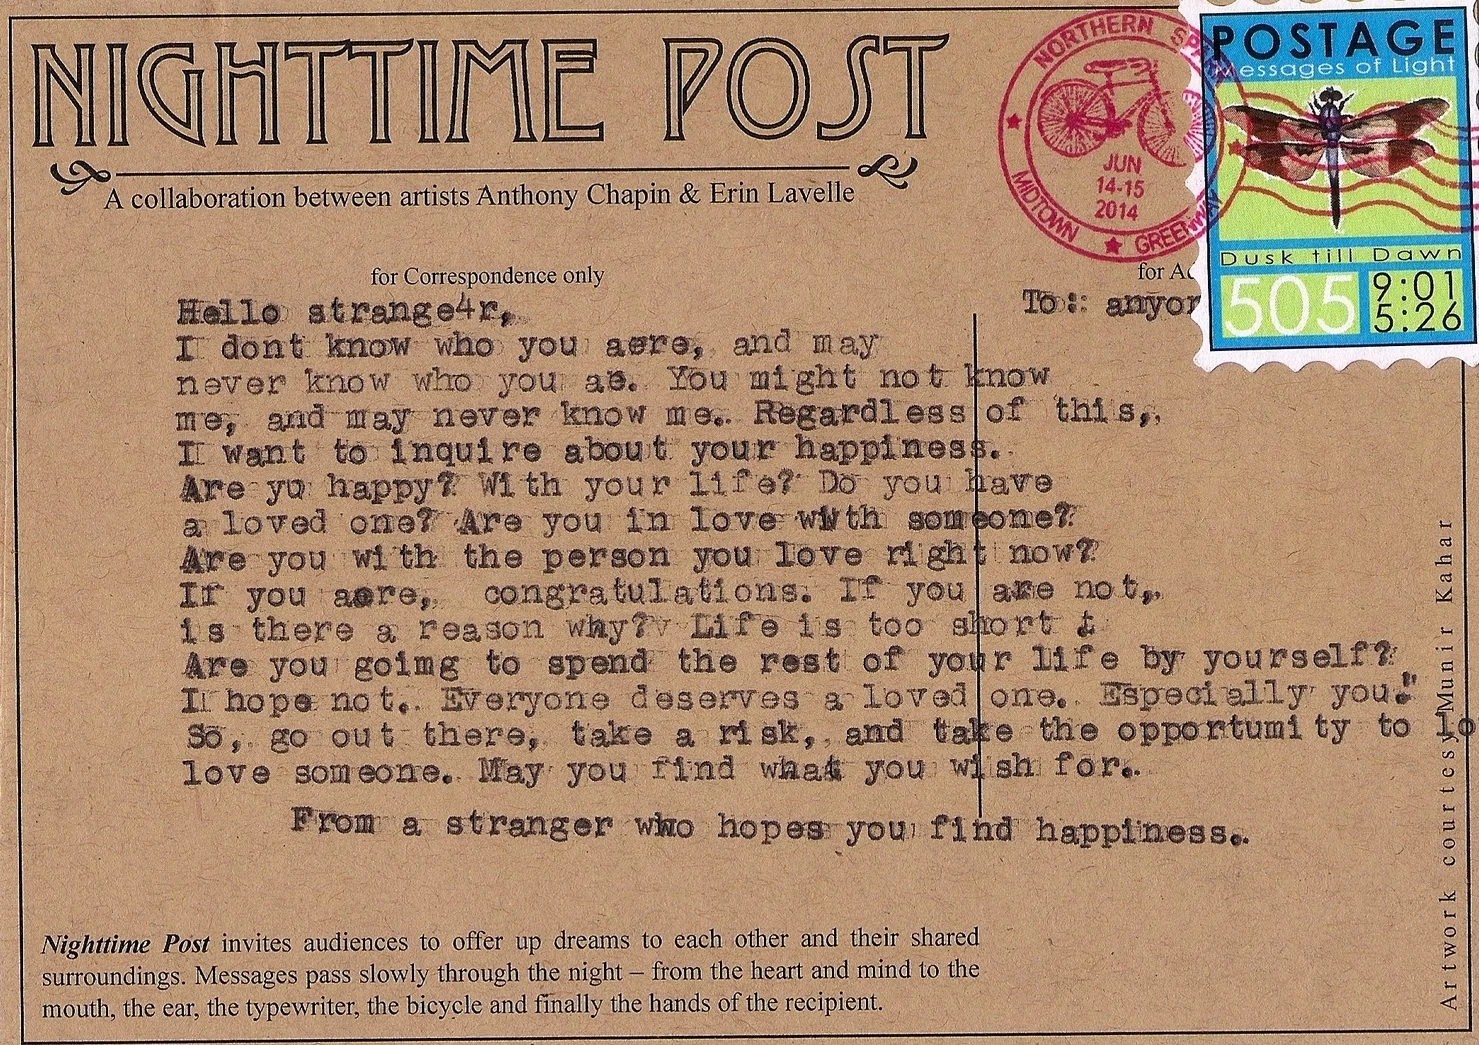 NIGHTTIME POST
A collaboration between artists Anthony Chapin & Erin Lavelle
NORTHERN
MIDTOWN ★ GREENWAY
JUN
14-15
2014
POSTAGE
Messages of Light
Dusk till Dawn
505
9:01
5:26
for Correspondence only
for
To:: anyon
Hello strange4r,
I dont know who you aere, and may
never know who you ae. You might not know
me, and may never know me. Regardless of this,
I want to inquire about your happiness.
Are yu happy? With your life? Do you have
a loved one? Are you in love with someone?
Are you with the person you love right now?
If you aere, congratulations. If you are not,
is there a reason why? Life is too short
Are you goimg to spend the rest of your life by yourself?
I hope not. Everyone deserves a loved one. Especially you."
So, go out there, take a risk, and take the opportumity to lo
love someone. May you find what you wish for.
From a stranger who hopes you find happiness.
Nighttime Post invites audiences to offer up dreams to each other and their shared
surroundings. Messages pass slowly through the night – from the heart and mind to the
mouth, the ear, the typewriter, the bicycle and finally the hands of the recipient.
Artwork courtesy Munir Kahar